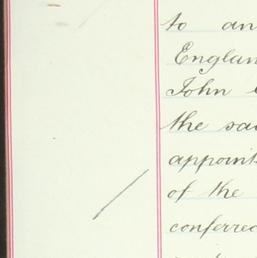 to an
England
John
the sa
appoint
of the
conferred